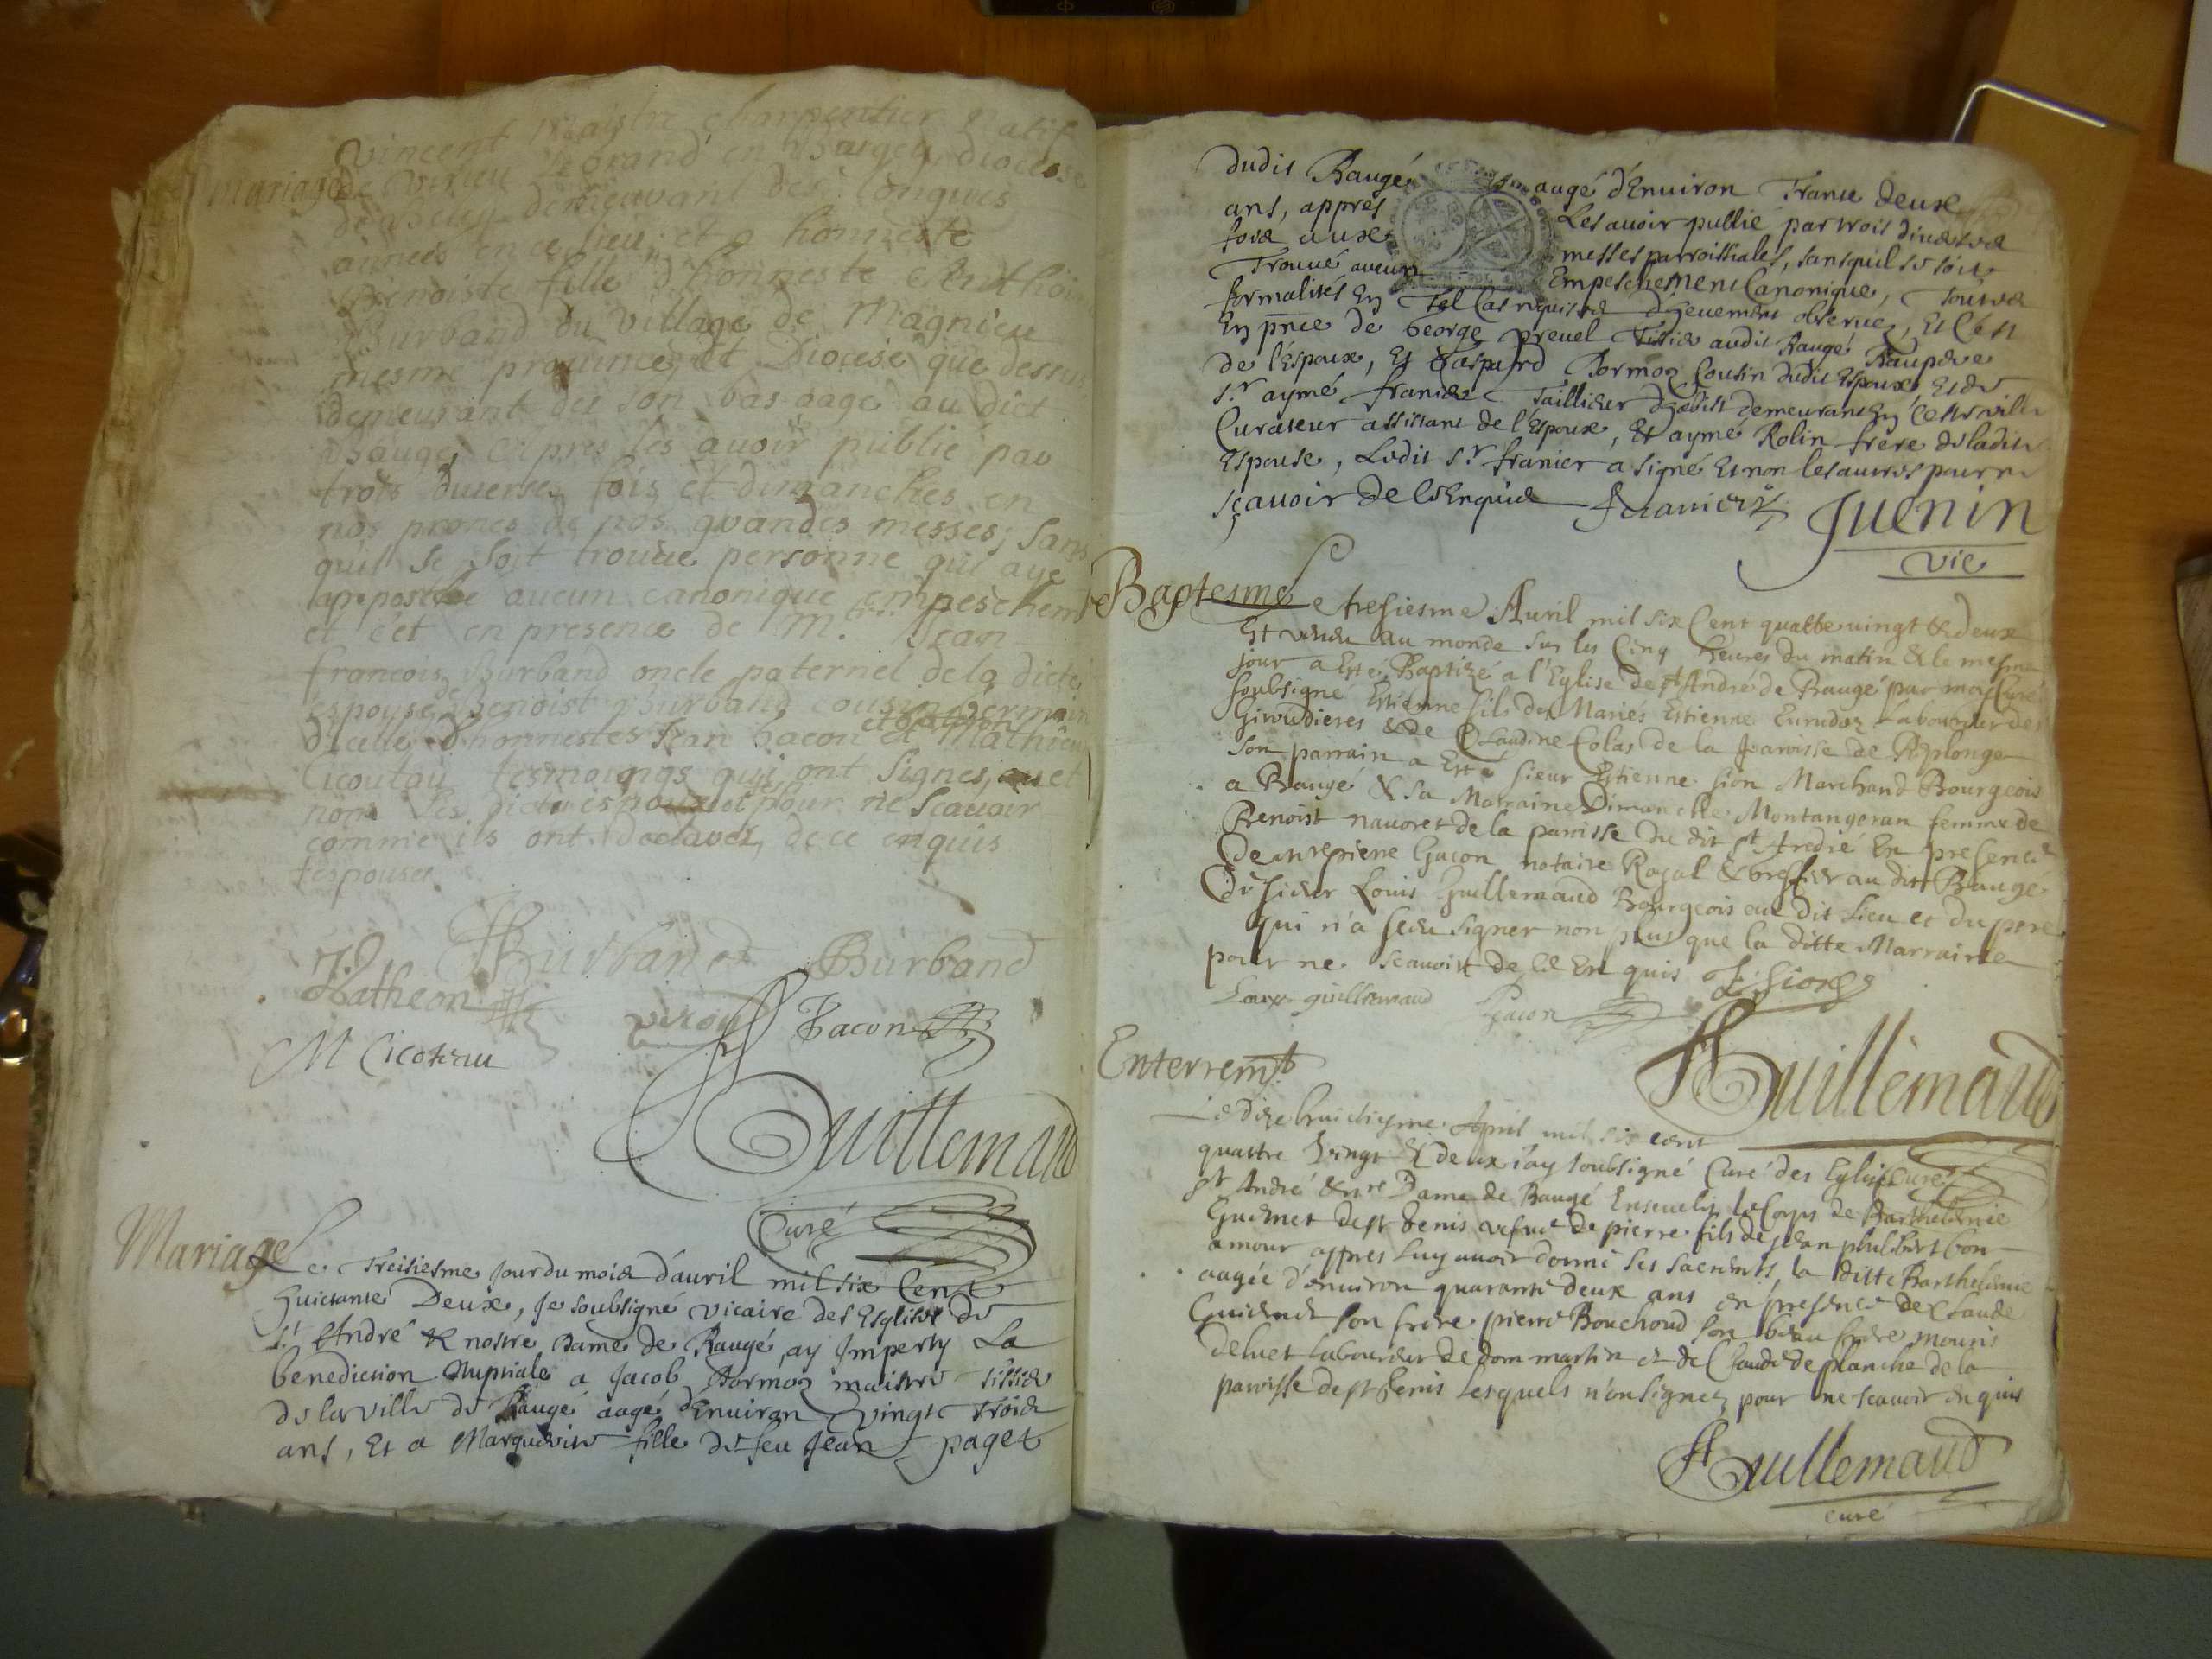 Mariage
vincent maistre charpentier natif
de virieu le grand en Baugey diocese
de Beley demeurant de longues
années en ce lieu, et a honneste
Benoiste fille d'honneste Anthoine
Burband du village de Magnieu
mesme province et Diocese que dessus
demeurant des son bas aage au dict
Baugé, apres les avoir publié par
trois diverses fois et dimanches en
nos prones de nos grandes messes, sans
quil se soit trouue personne qui aye
apposthé aucun canonique empeschem
et cét en presence de M.re Jean
francois Burband oncle paternel de la dicte
espouse, de Benoist Burband cousin germain
d'icelle, d'honnestes Jean bacon et Mathieu
Cicoutau tesmoings qui ont signes, et
non les dicts espoux pour ne scauoir
comme ils ont declarez, de ce enquis
lespouse
Burband Burband
Hatheon
Bacon
M Cicoteau
Guillemaud
Curé
Mariage
Le Treisiesme Jour du mois d'auril mil six Cent
huictante Deux, Je soubsigné vicaire des Esglises de
St André & nostre Dame de Baugé, ay Imperty La
benediction Nuptiale a Jacob Pormoz maistre tissie
de la ville de Baugé aagé d'Enuiron vingt Trois
ans, Et a Marguerite fille de feu Jean paget
dudit Baugé aagé d'Enuiron Trante deux
ans, appres Les auoir publié par trois diuerses
fois aux messes parroissiales, sans quil se soit
Trouué aucun Empeschement Canonique, Toutes
formalités En Tel Cas requises deuement obseruez, Et C'est
En pnce de George preuel Tissie audit Baugé Beaupere
de l'Espoux, Et Gaspard Pormoz Cousin dudit Espoux, Et de
Sr aymé franier Taillieur d'habits demeurant En Cette ville
Curateur assistant de l'Espoux, Et aymé Rolin frère de ladite
Espouse, Ledit Sr franier a signé Et non les autres pour ne
sçauoir de Ce Enquis franier Juenin
vic
Baptesme
Le tresiesme Auril mil six Cent quattre uingt & deux
Est venu au monde sur les Cinq heures du matin & le mesme
jour a Esté Baptizé a l'Eglise de St André de Baugé par moy Curé
soubsigné Estienne fils des Mariés Estienne Eurudoz Laboureur des
Giroudieres & de Claudine Colas de la Paroisse de Replonge
son parrain a Esté sieur Estienne Sion Marchand Bourgeois
a Baugé & sa Marraine Dimanche Montangeran femme de
Benoist nauoret de la paroisse du dit St André En presence
De mre pierre Gacon notaire Royal & greffier au dit Baugé
Du sieur Louis Guillemaud Bourgeois au dit Lieu et du pere
qui n'a sceu signer non plus que la ditte Marraine
pour ne scauoir de ce En quis E Sion
Louys guillemaud Gacon
Guillemaud
Curé
Enterremt
Le dixe huictiesme Apuril mil six cent
quattre vingt & deux i'ay soubsigné Curé des Eglises
St André & nre Dame de Baugé Enseuely le Corps de Barthelemie
Guienet de St Genis vefue de pierre fils de Jean philibert bon
amour appres luy auoir donné les sacremts, la ditte Barthelemie
aagée d'enuiron quarante deux ans en presence de Claude
Guienet son frere pierre Bouchoud son beau frere mouris
Deluet laboureur de Dom martin et de Claude de planche de la
paroisse de St Genis lesquels n'on signez pour ne scauoir enquis
Guillemaud
curé